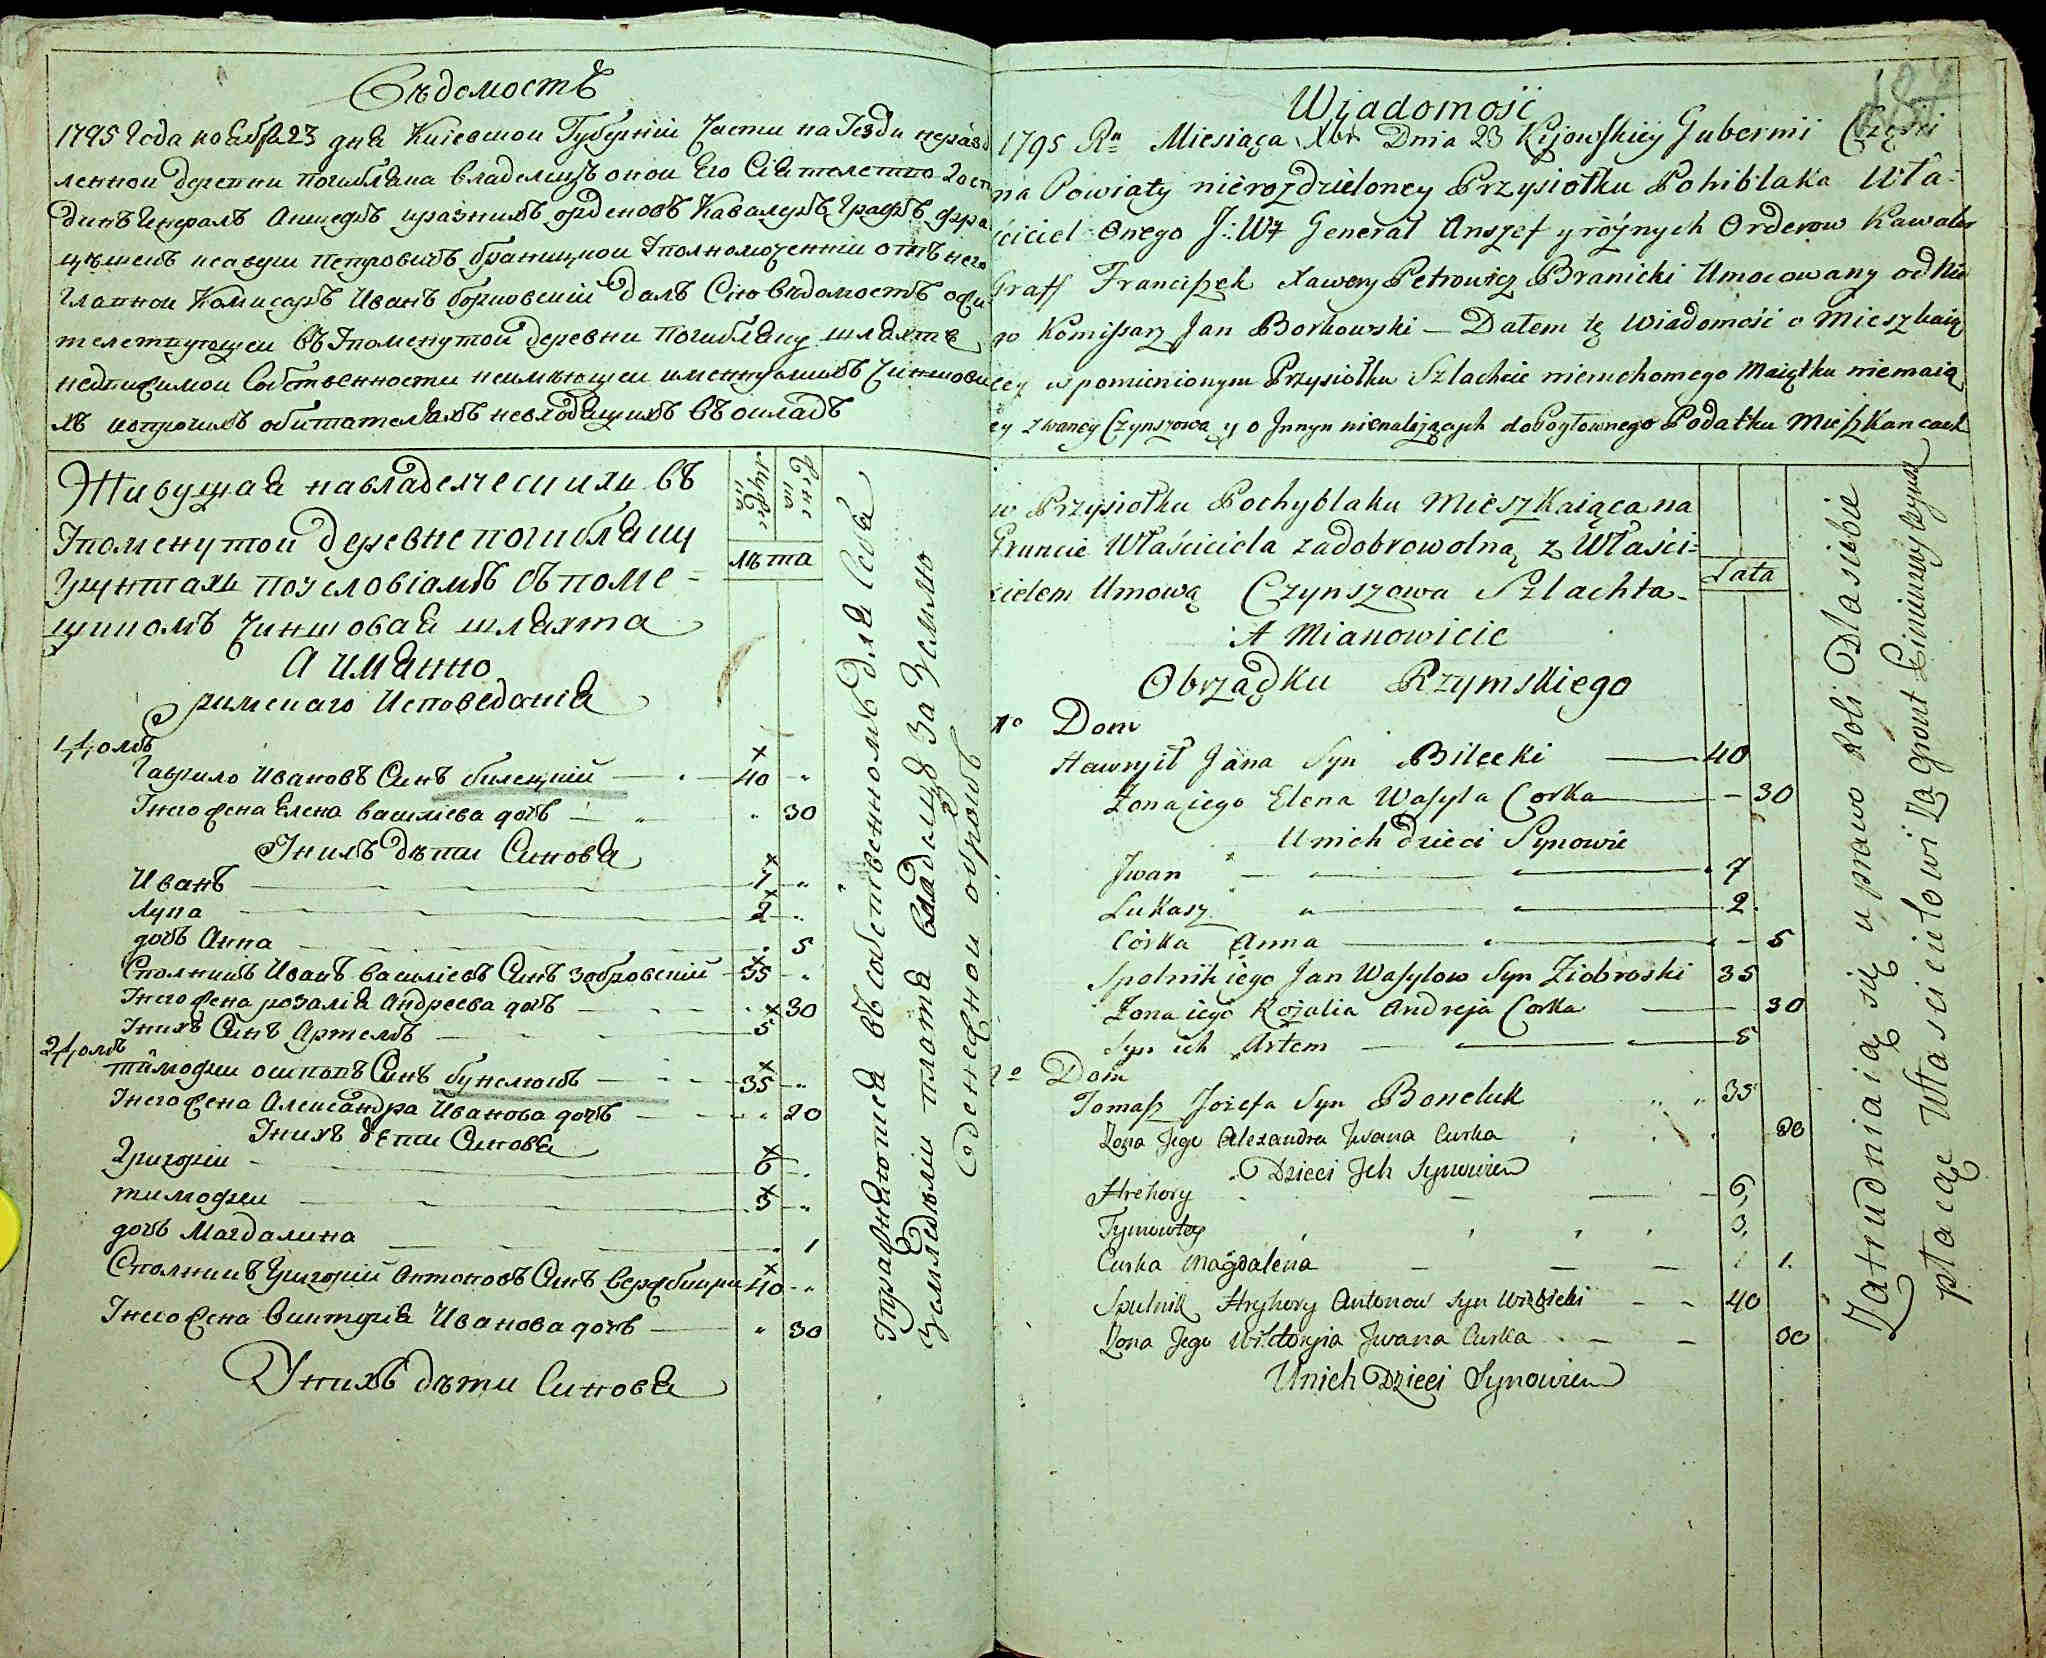 Вѣдомость
1795 Года ноября 23 дня Киевской Губерніи Части на Уезди нераздѣ
ленной деревни погибляка владелецъ оной Его Сіятелство Госпо
динъ Генералъ Аншефъ и разнихъ орденовъ Кавалеръ, Графъ Фран
цишекъ ксавери Петровичъ браницкой Уполномоченній отъ него
Главной Комисаръ Иванъ борковскій далъ Сію вѣдомость оби
телствующей въ Упоменутой деревни погибляку шляхте
недвижимой Собственности неимѣющей именуемихъ Чиншови
хъ ипрочихъ обитателяхъ невходящихъ въ окладъ
Живущая на владелческихъ въ
Упоменутой деревне погибляку
Грунтахъ по условіамъ съ поме=
щикомъ Чиншовая шляхта
А имянно
римскаго Исповеданія
Мужеска
Женска
лѣта
1 домъ
Гаврило Ивановъ Синъ билецкій 40
Унего жена Елена василіева дочь 30
Унихъ дѣти Синовя
Иванъ 7
лука 2
дочь Анна 5
Сполникъ Иванъ василіевъ Синъ Зобровскій 35
Унего жена розаліа Андреева дочь 30
Унихъ Синъ Артемъ 5
2 домъ
тимофеи осиповъ Синъ бунелюкъ 35
Унего жена Александра Иванова дочь 20
Унихъ дети Синовя
Григорій 6
тимофеи 3
дочь Магдалина 1
Сполникъ Григорій Антоновъ Синъ вержбицки 40
Унего жена виктория Иванова дочь 30
Унихъ дѣти Синовя
Упражняются въ собственномъ для Себя
Земледѣліи плотя владелцу за Землю
денежной оброкъ
Wjadomość
1795 Ru Miesiąca Xbr Dnia 23 Kijowskiey Gubernii Części
na Powiaty nierozdzieloney Przysiołku Pohiblaka Wła=
ściciel Onego J: W Generał Anszef y różnych Orderow Kawaler
Graff Franciszek Xawery Petrowicz Branicki Umocowany od Nie
go Komissarz Jan Borkowski — Dałem tę Wiadomość o Mieszkaią
cey w pomienionym Przysiołku Szlachcie nieruchomego Maiątku niemaią
cy zwaney Czynszową y o Jnnyn nienależących do Pogłownego Podatku Mieszkancach
w Przysiołku Pochyblaku Mieszkaiąca na
Gruncie Właściciela za dobrowolną z Właści=
cielem Umową Czynszowa Szlachta
A Mianowicie
Obrządku Rzymskiego
Lata
1o Dom
Hawryił Jana Syn Bilecki 40
Zona iego Elena Wasyla Corka 30
U nich dzieci Synowie
Jwan 7
Lukasz 2
Córka Anna 5
Spolnik iego Jan Wasylow Syn Ziobroski 35
Zona iego Rozalia Andreja Corka 30
Syn ich Artem 5
2o Dom
Tomasz Jozefa Syn Boneluk 35
Zona Jego Alexandra Jwana Curka 20
Dzieci Jch Synowie
Hrehory 6
Tymowtey 3
Curka Magdalena 1
Spulnik Hryhory Antonow Syn Wirbicki 40
Zona Jego Wiktoryia Jwana Curka 30
U nich Dzieci Synowie
Zatrudniaią się u prawo Roli Dla siebie
płacąc Właścicielowi Za Grunt Pinienzny